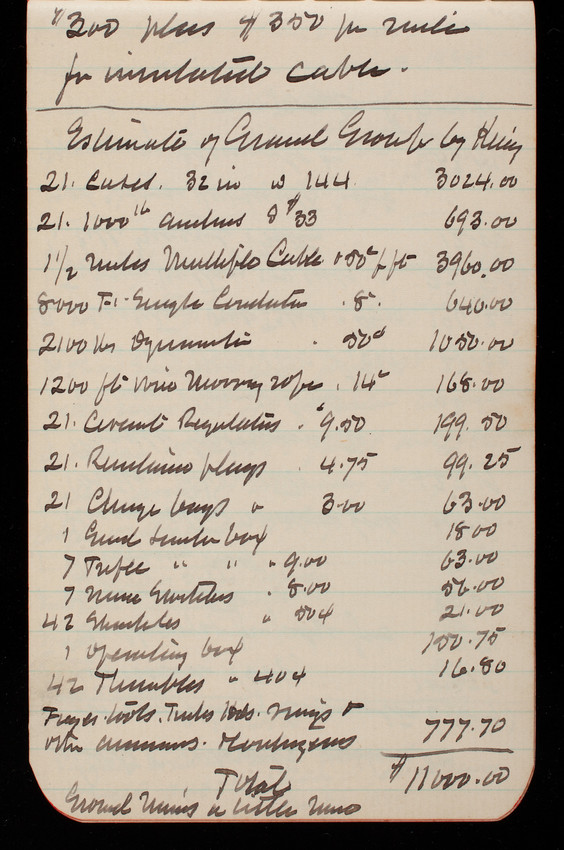 $300 plus $350 per mile
for insulated cable.
Estimate of Ground Group by
21. Cases. 32 in @ 144 3024.00
21. 1000 lb anchors @ $33 693.00
1 1/2 miles Multiple Cable 50¢ p ft 3960.00
8000 Ft. Single Conductor . 8¢. 640.00
2100 lbs Dynamite . 50¢ 1050.00
1200 ft wire Mooring rope . 14¢ 168.00
21. Circuit Regulators . $9.50 199.50
21. plugs . 4.75 99.25
21 Charge bags " 3.00 63.00
1 Grand Junction box 18.00
7 Triple " " " 9.00 63.00
7 Mine Switches " 8.00 56.00
42 Shackles " 50¢ 21.00
1 Operating box 150.75
42 Thimbles " 40¢ 16.80
tools.
other 777.70
Total $11000.00
Ground Mines a better